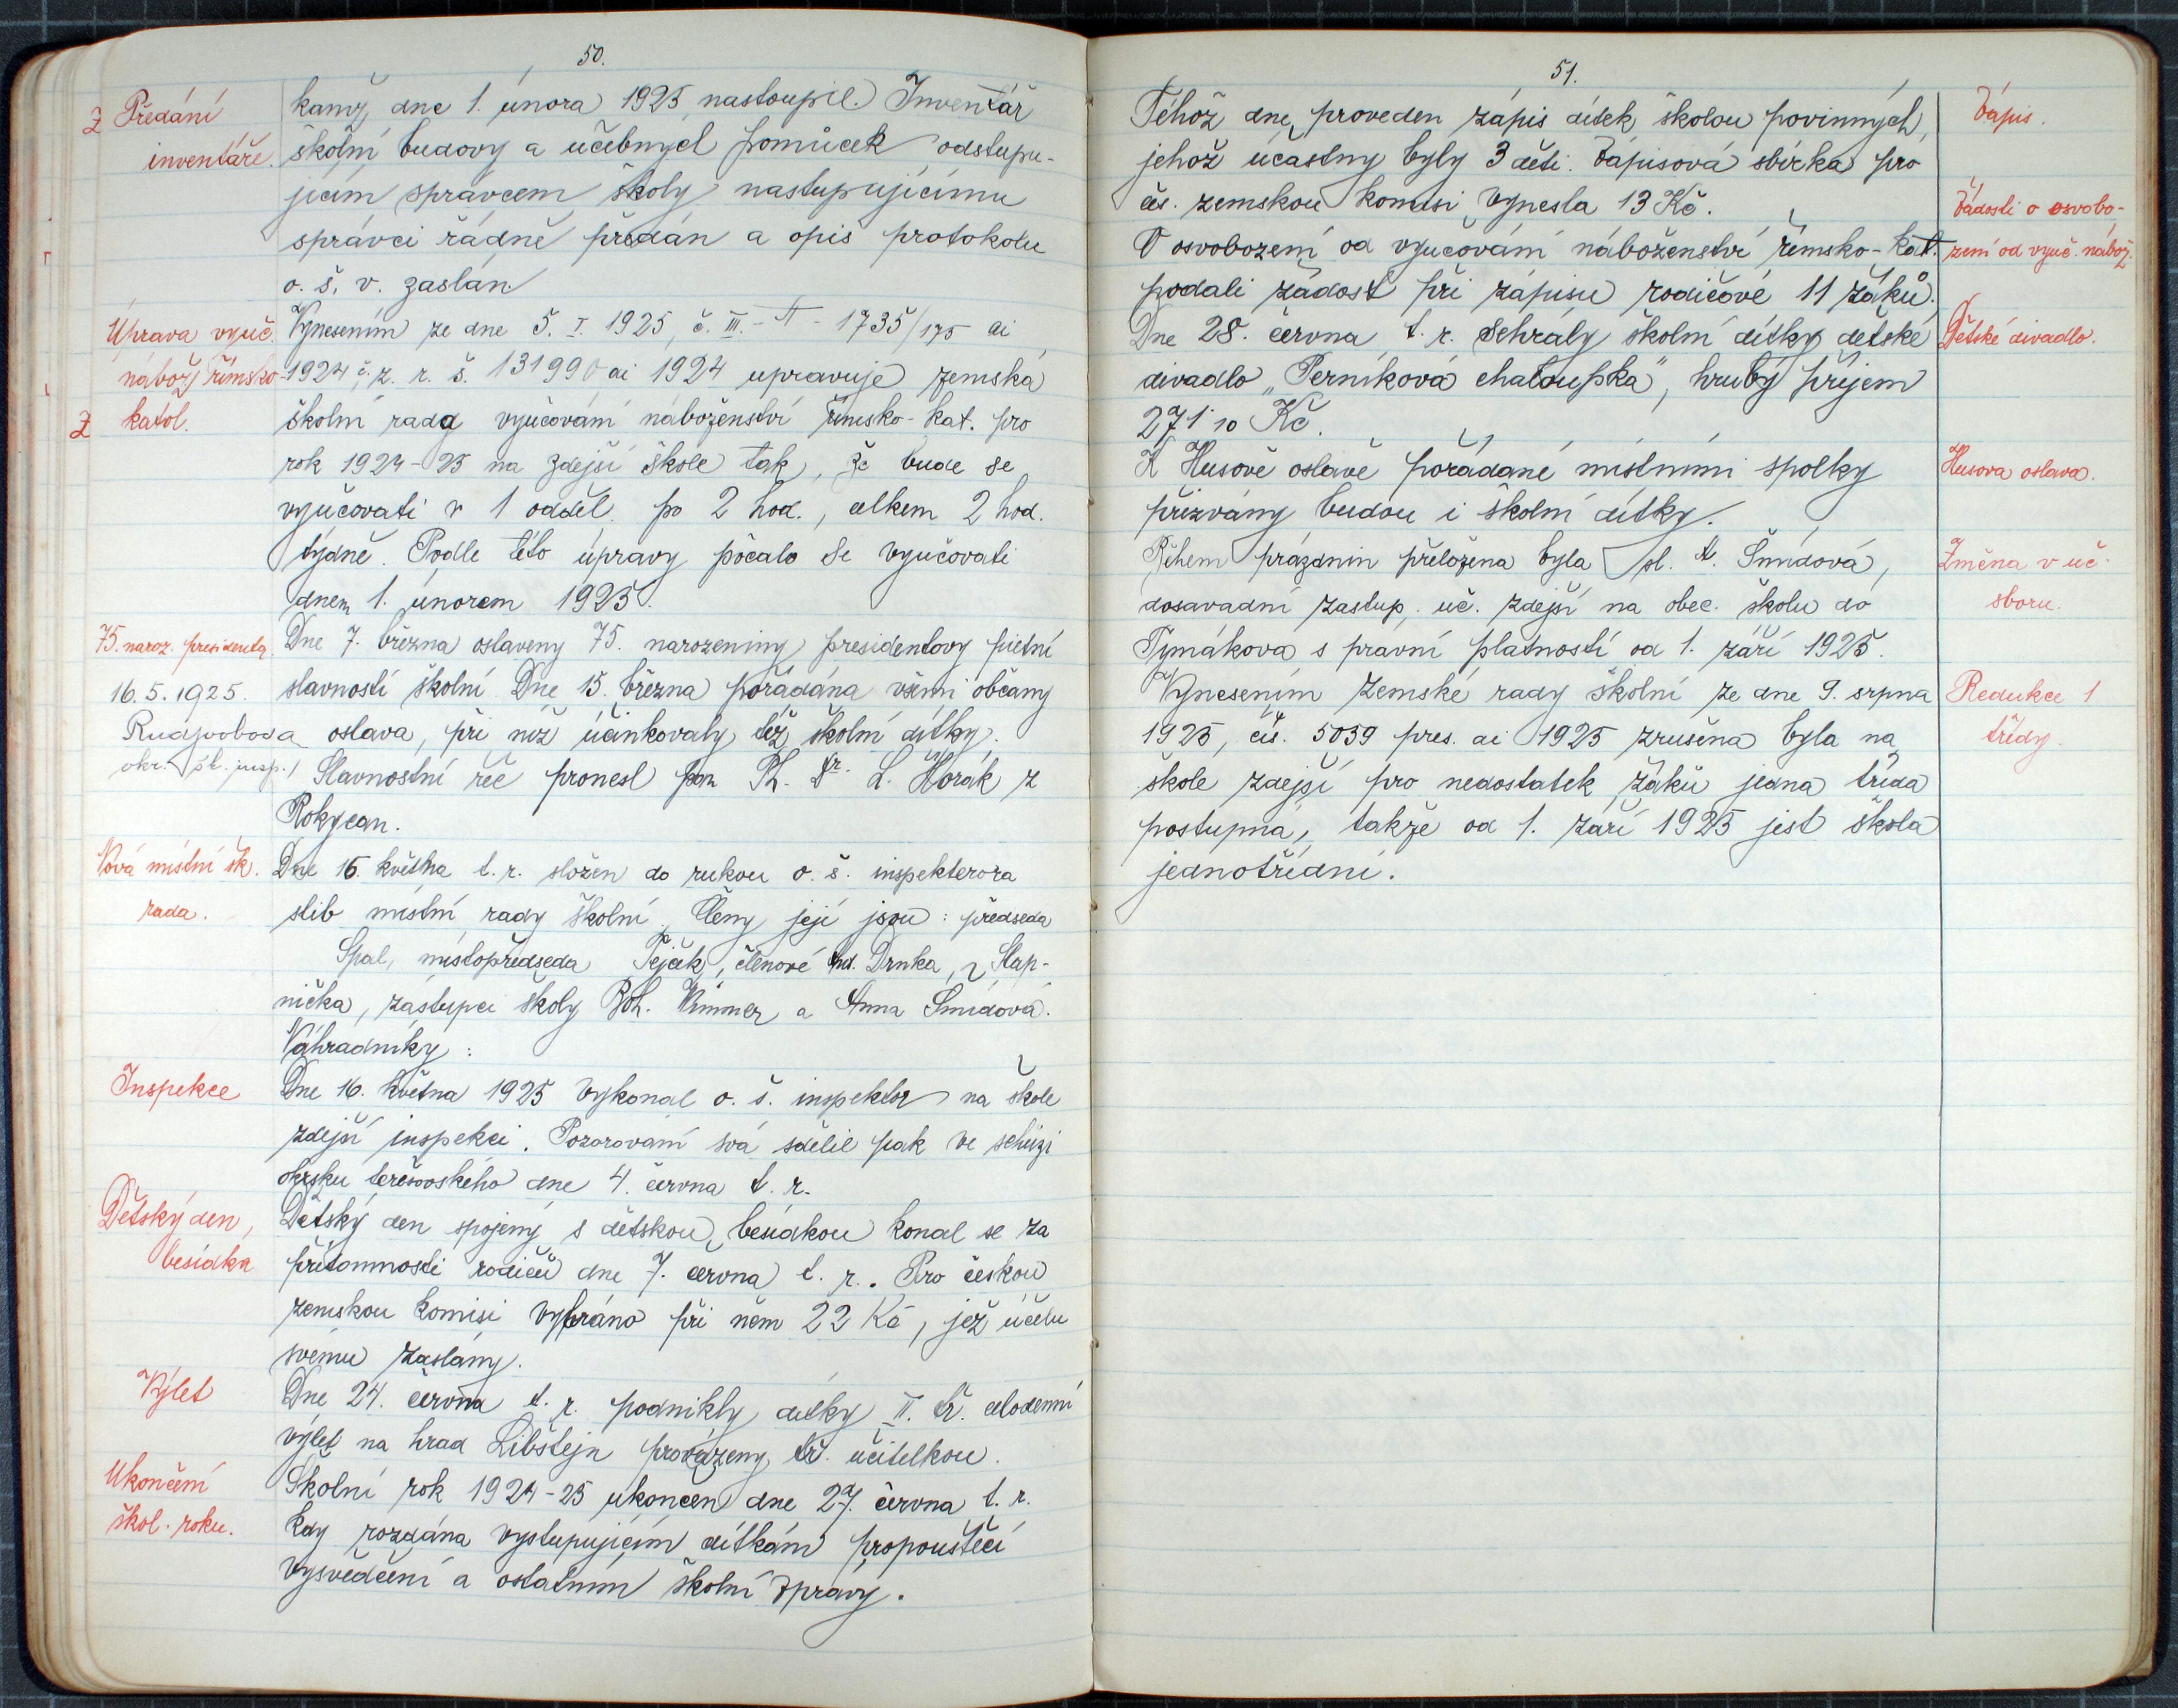 50.
Z Předání
inventáře.
kamž dne 1. února 1925 nastoupil. Inventář
školní budovy a učebných pomůcek odstupu-
jícím správcem školy nastupujícímu
správci řádně předán a opis protokolu
o. š. v. zaslán.
Úprava vyuč.
nábož. římsko-
Z katol.
Vynesením ze dne 5. I. 1925, č. III. - A - 1735/175 ai
1924 č. z. r. š. 131990 ai 1924 upravuje zemská
školní rada vyučování náboženství římsko-kat. pro
rok 1924-25 na zdejší škole tak, že bude se
vyučovati v 1 odděl. po 2 hod., celkem 2 hod.
týdně. Podle této úpravy počalo se vyučovati
dnem 1. únorem 1925.
75. naroz. presidenta.
Dne 7. března oslaveny 75. narozeniny presidentovy pietní
slavností školní. Dne 15. března pořádána všemi občany
oslava, při níž účinkovaly též školní dítky.
Slavnostní řeč pronesl pan Ph. Dr. L. Horák z
Rokycan.
16. 5. 1925.
Rudjvoboda
okr. šk. insp.
Nová místní šk.
rada.
Dne 16. května t. r. složen do rukou o. š. inspekterora
slib místní rady školní. Členy její jsou: předseda
Spal, místopředseda Tejček, členové Ond. Drnka, Slap-
nička, zástupci školy Boh. Wimmer a Anna Šmídová.
Náhradníky:
Inspekce
Dne 16. května 1925 vykonal o. š. inspektor na škole
zdejší inspekci. Pozorování svá sdělil pak ve schůzi
okrsku terešovského dne 4. června t. r.
Dětský den,
besídka
Dětský den spojený s dětskou besídkou konal se za
přítomnosti rodičů dne 7. června t. r. Pro českou
zemskou komisi vybráno při něm 22 Kč, jež účelu
svému zaslány.
Výlet
Dne 24. června t. r. podnikly dítky II. tř. celodenní
výlet na hrad Libštejn provázeny tř. učitelkou.
Ukončení
škol. roku.
Školní rok 1924-25 ukončen dne 27. června t. r.
kdy rozdána vystupujícím dítkám propouštěcí
vysvědčení a ostatním školní zprávy.
51.
Téhož dne proveden zápis dítek školou povinných,
jehož účastny byly 3 děti. Zápisová sbírka pro
čes. zemskou komisi vynesla 13 Kč.
Zápis.
O osvobození od vyučování náboženství římsko-kat.
podali žádost při zápisu rodičové 11 žáků.
Žádosti o osvobo-
zení od vyuč. nábož.
Dne 28. června t. r. sehrály školní dítky dětské
divadlo „Perníková chaloupka", hrubý příjem
271.10 Kč.
Dětské divadlo.
K Husově oslavě pořádané místními spolky
přizvány budou i školní dítky.
Husova oslava.
Během prázdnin přeložena byla sl. A. Šmídová,
dosavadní zastup. uč. zdejší na obec. školu do
Tymákova s právní platností od 1. září 1925.
Změna v uč.
sboru.
Vynesením zemské rady školní ze dne 9. srpna
1925, čís. 5039 pres. ai 1925 zrušena byla na
škole zdejší pro nedostatek žáků jedna třída
postupná, takže od 1. září 1925 jest škola
jednotřídní.
Redukce 1
třídy.